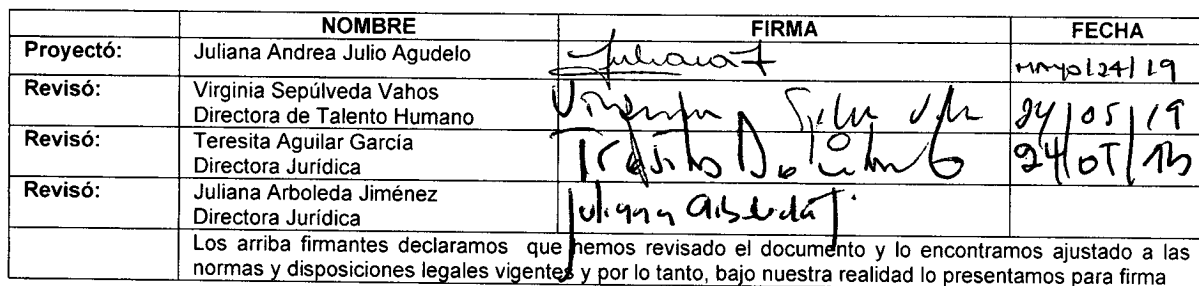 NOMBRE FIRMA FECHA
Proyectó: Juliana Andrea Julio Agudelo Juliana J MAYO/24/19
Revisó: Virginia Sepúlveda Vahos
Directora de Talento Humano 24/05/19
Revisó: Teresita Aguilar García
Directora Jurídica
Revisó: Juliana Arboleda Jiménez Juliana Arboleda J.
Directora Jurídica
Los arriba firmantes declaramos que hemos revisado el documento y lo encontramos ajustado a las
normas y disposiciones legales vigentes y por lo tanto, bajo nuestra realidad lo presentamos para firma